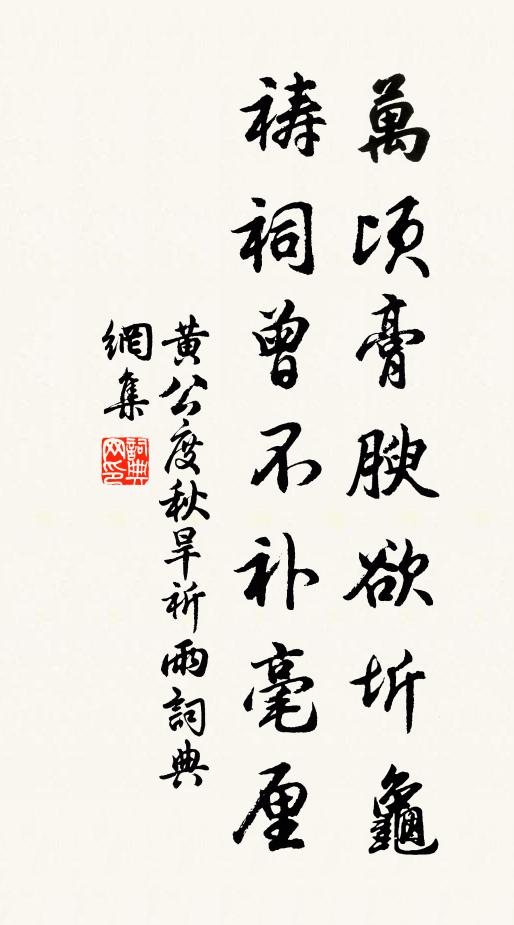 萬頃膏腴欲坼龜
禱祠曾不补毫厘
黄公度秋旱祈雨詞典
網集
詞典網印